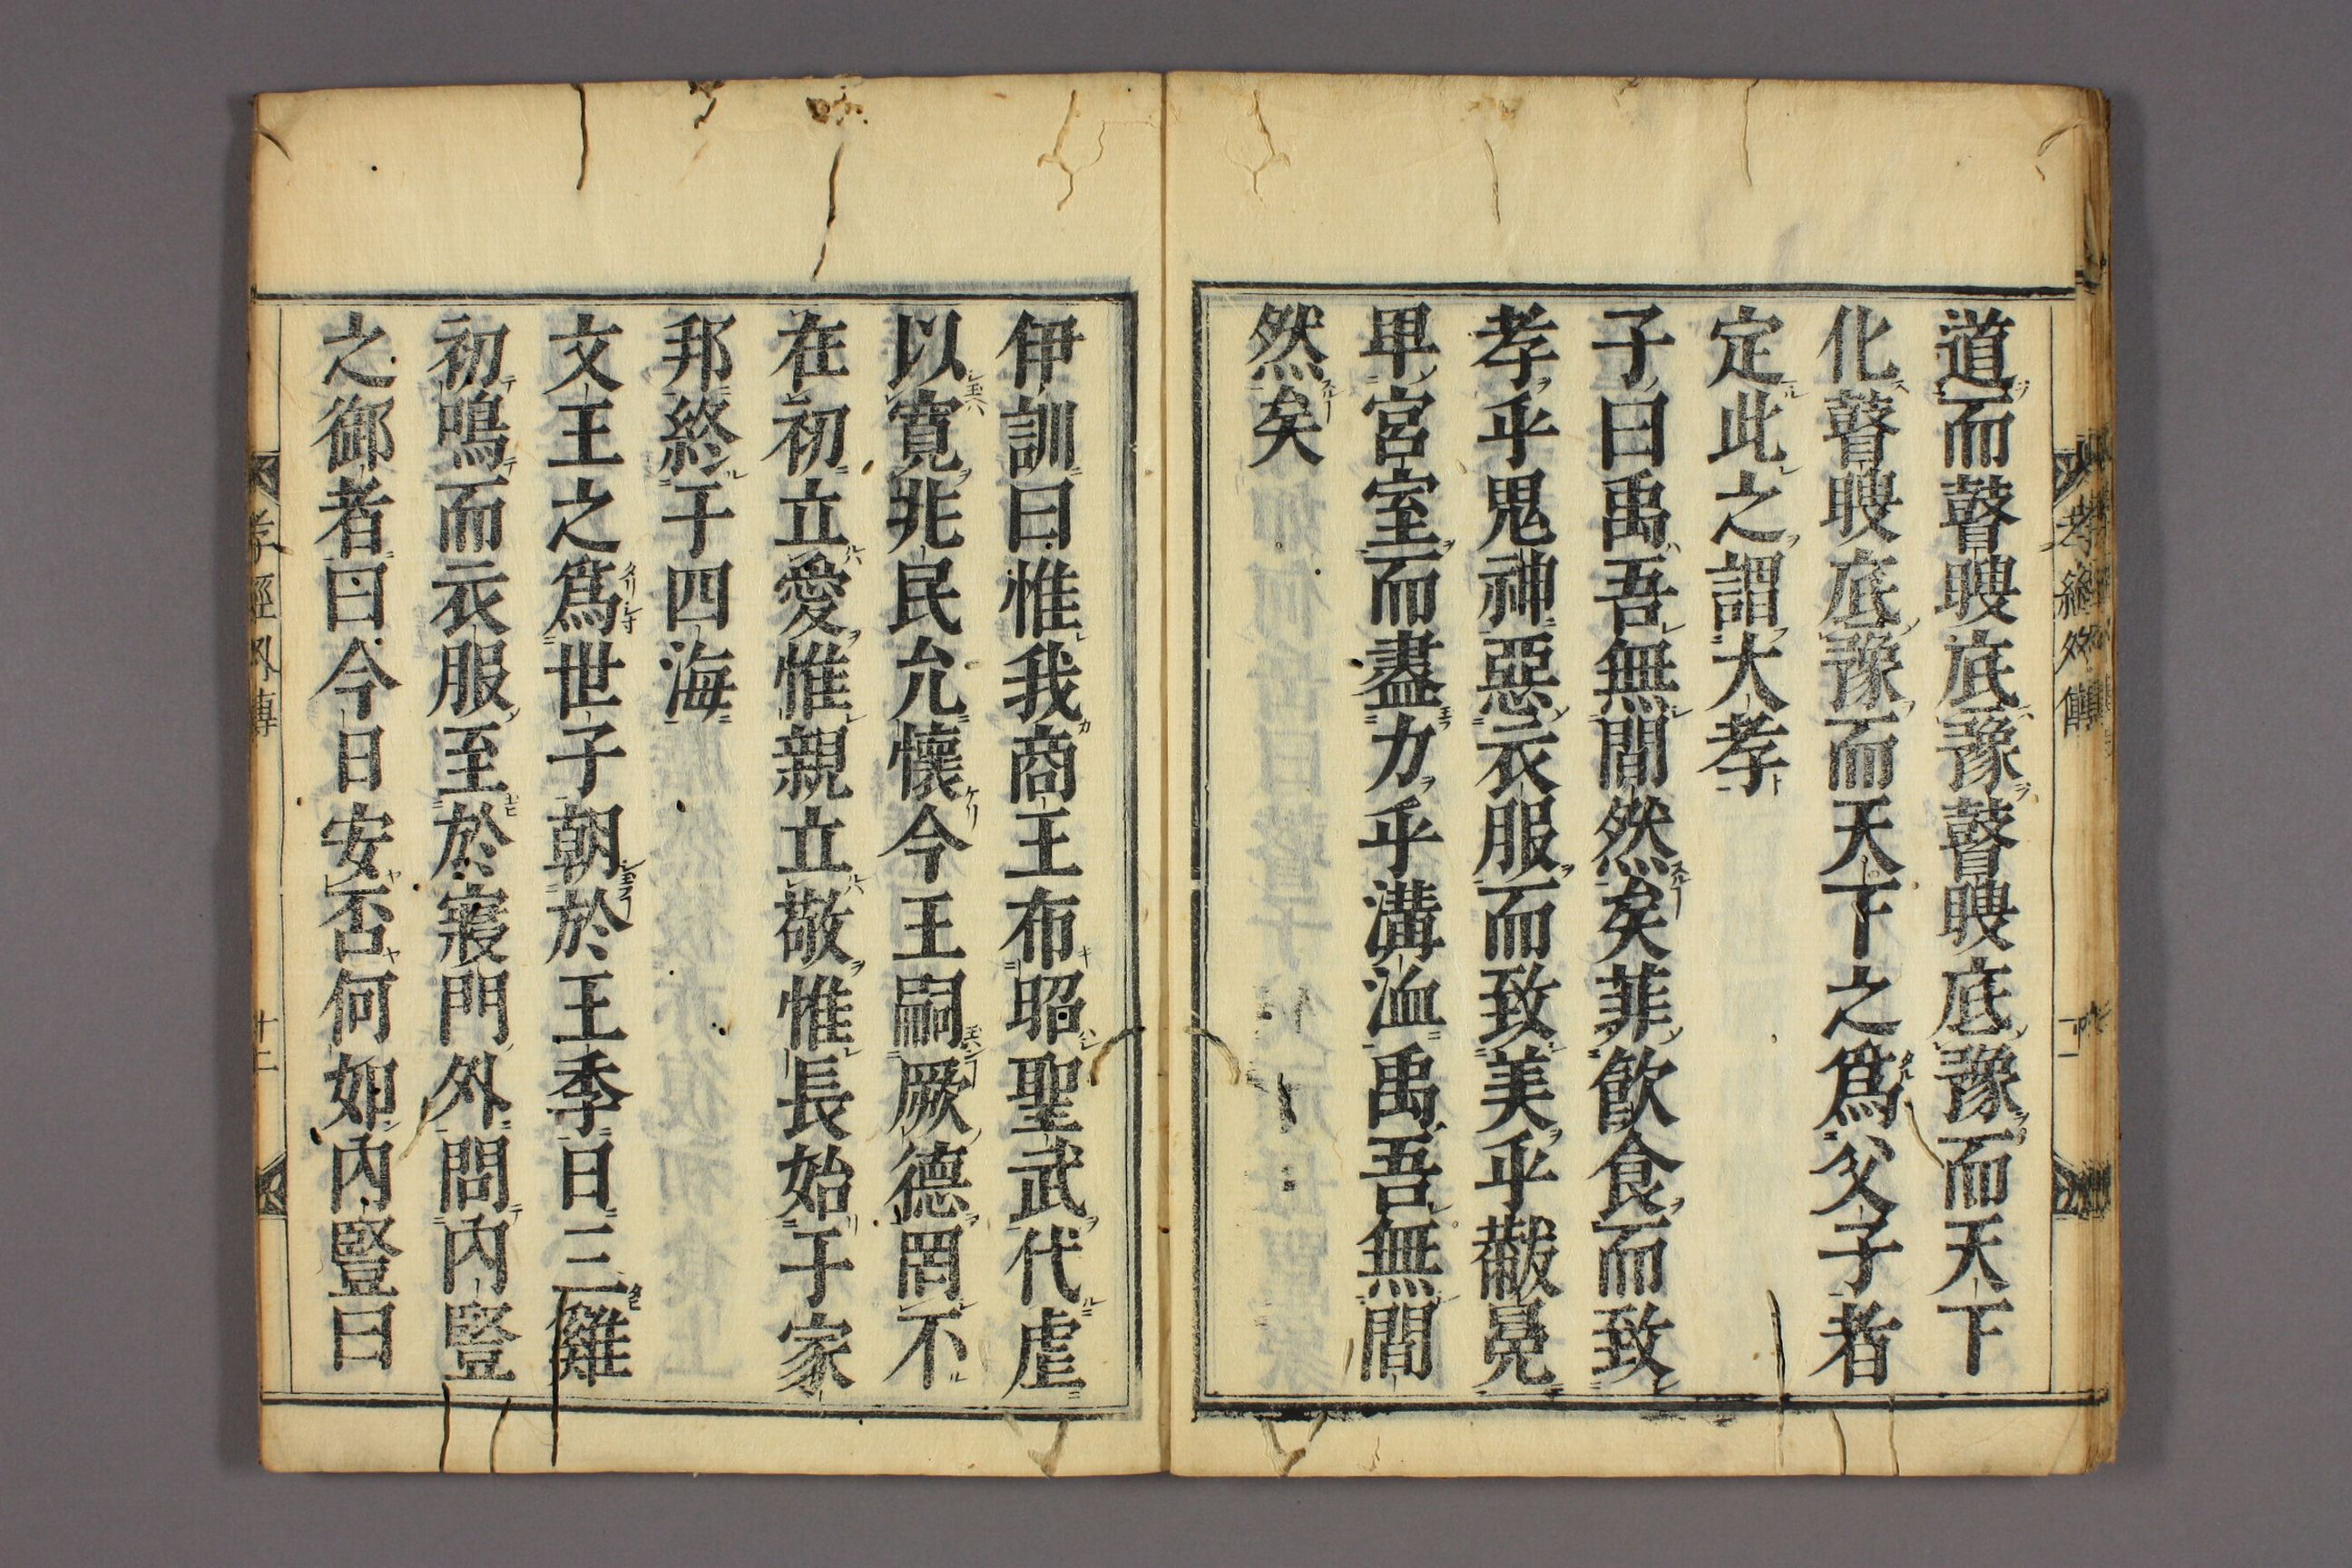 道而瞽瞍底豫瞽瞍底豫而天下
化瞽瞍底豫而天下之爲父子者
定此之謂大孝
子曰禹吾無間然矣菲飮食而致
孝乎鬼神惡衣服而致美乎黻冕
卑宮室而盡力乎溝洫禹吾無間
然矣
伊訓曰惟我商王布昭聖武代虐
以寬兆民允懷今王嗣厥德罔不
在初立愛惟親立敬惟長始于家
邦終于四海
文王之爲世子朝於王季日三雞
初鳴而衣服至於寢門外問內豎
之御者曰今日安否何如內豎曰
孝經外傳
十二